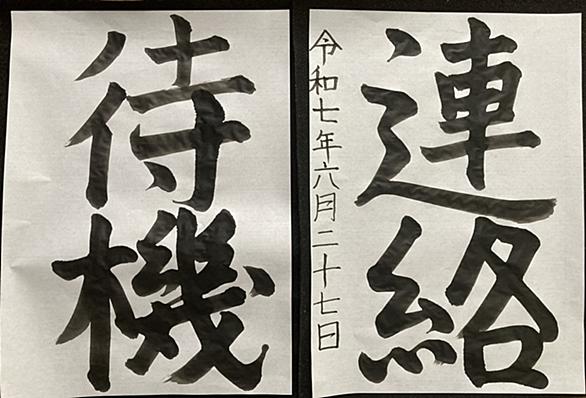 連絡
令和七年六月二十七日
待機